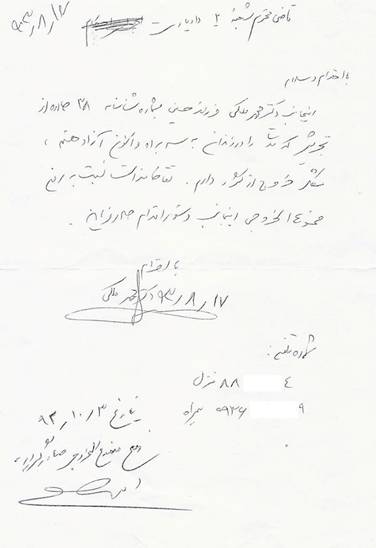 ۹۳/۸/۱۷
قاضی محترم شعبهٔ ۲ دادیاری
با احترام و سلام
اینجانب دکتر محمد ملکی فرزند حسین بشماره شناسنامه ۲۸ صادره از
تجریش که مدت را در زندان به سر برده و اکنون آزاد هستم ،
مشکل خروج از کشور دارم . تقاضامند است نسبت به رفع
ممنوع الخروجی اینجانب دستور اقدام صادر فرمایید .
با احترام
دکتر محمد ملکی ۹۳/۸/۱۷
شماره تلفن :
۸۸ ۴ منزل
۰۹۳۶ ۹ همراه
بتاریخ ۹۳/۱۰/۳
رفع ممنوع الخروجی صادر گردید